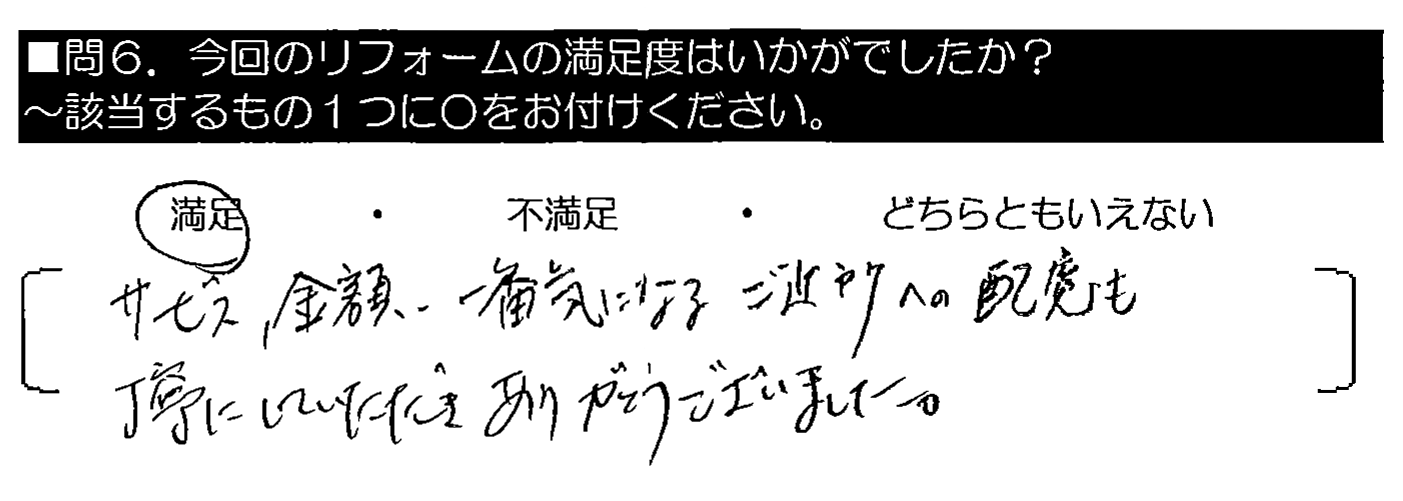 ■問６．今回のリフォームの満足度はいかがでしたか？
～該当するもの１つに〇をお付けください。
満足 ・ 不満足 ・ どちらともいえない
サービス、金額、一番気になる ご近所への配慮も
丁寧にしていただき ありがとうございました。